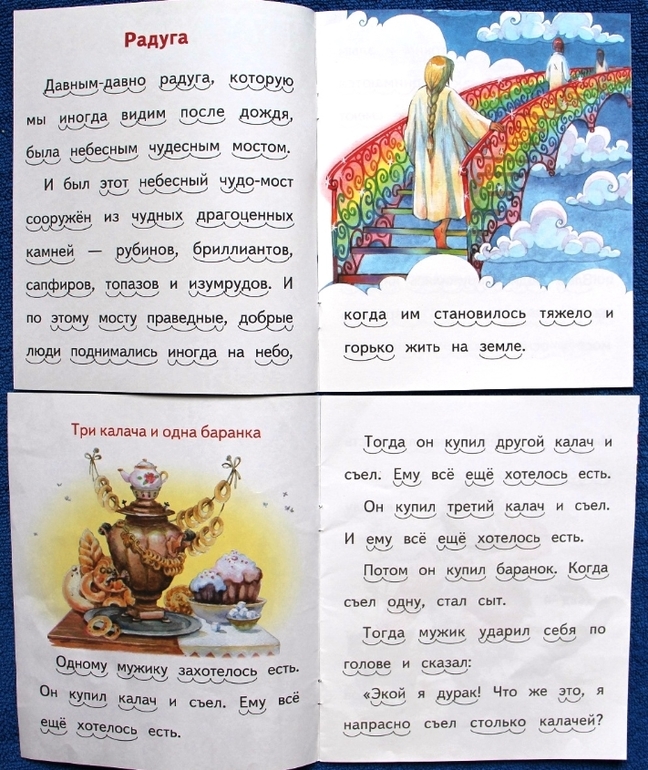 Радуга
Давным-давно радуга, которую
мы иногда видим после дождя,
была небесным чудесным мостом.
И был этот небесный чудо-мост
сооружён из чудных драгоценных
камней — рубинов, бриллиантов,
сапфиров, топазов и изумрудов. И
по этому мосту праведные, добрые
люди поднимались иногда на небо,
когда им становилось тяжело и
горько жить на земле.
Три калача и одна баранка
Одному мужику захотелось есть.
Он купил калач и съел. Ему всё
ещё хотелось есть.
Тогда он купил другой калач и
съел. Ему всё ещё хотелось есть.
Он купил третий калач и съел.
И ему всё ещё хотелось есть.
Потом он купил баранок. Когда
съел одну, стал сыт.
Тогда мужик ударил себя по
голове и сказал:
«Экой я дурак! Что же это, я
напрасно съел столько калачей?